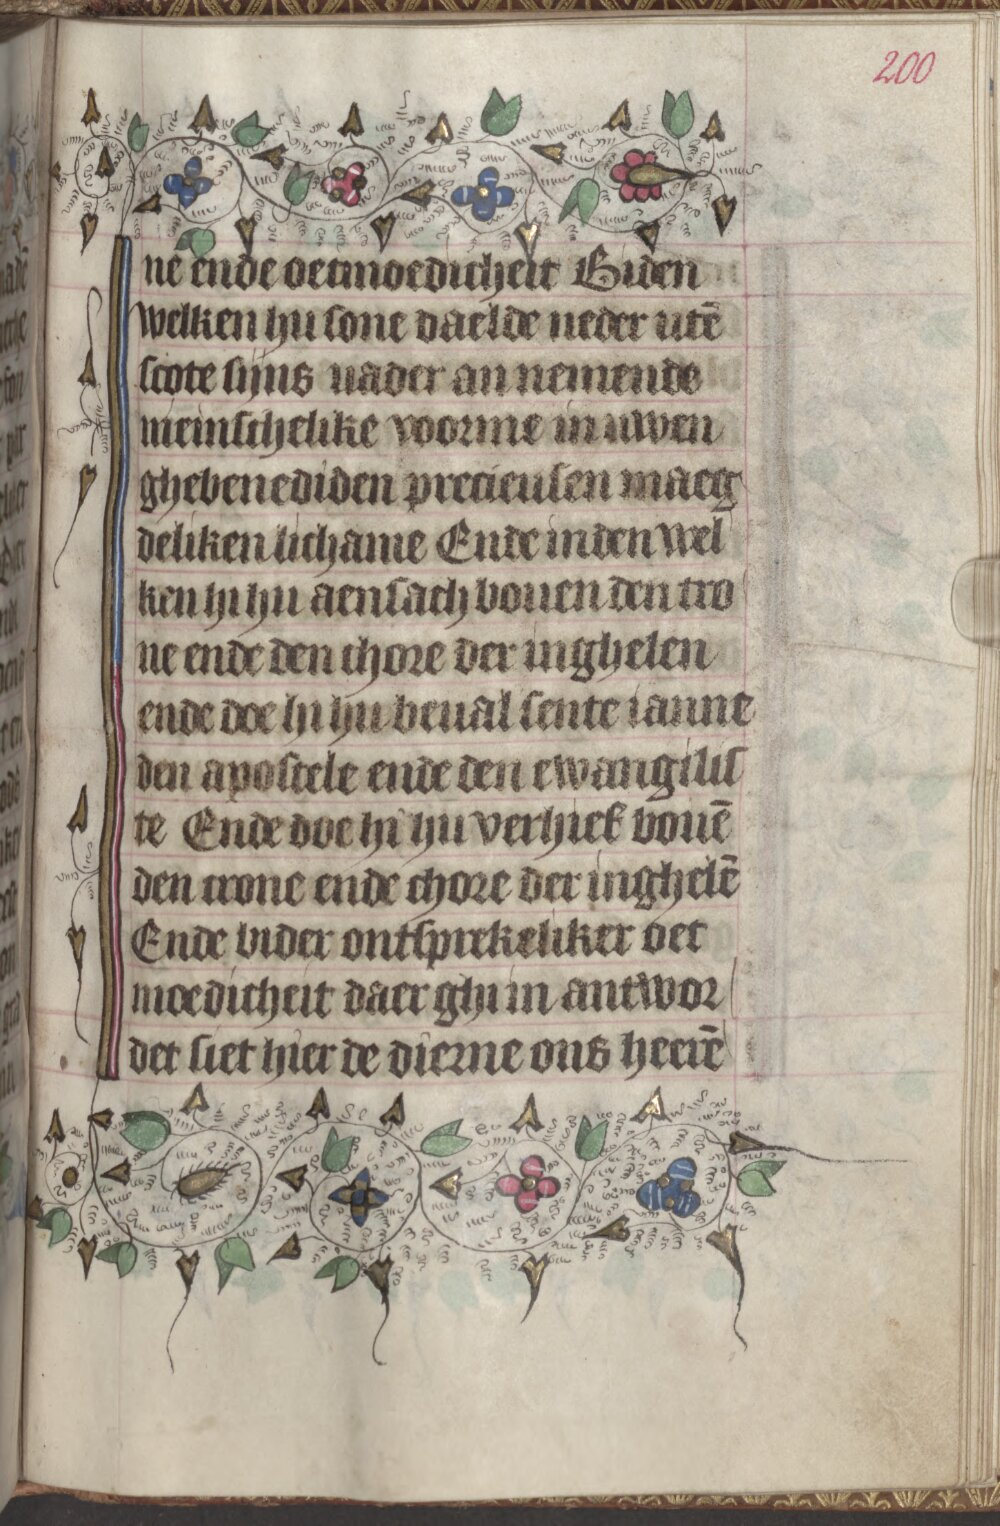 200
ne ende oetmoedicheit Biden
welken hu sone daelde neder utē
scote sijns vader an nemende
meinschelike voorme in uwen
ghebenediden precieusen maeg
deliken lichame Ende in den wel
ken hi hu aensach bouen den tro
ne ende den chore der inghelen
ende doe hi hu beual sente ianne
den apostele ende den ewangelis
te Ende doe hi hu verhief bouē
den trone ende chore der inghelē
Ende bider ontsprekeliker oet
moedicheit daer ghi in antwor
det siet hier de dierne ons heerē